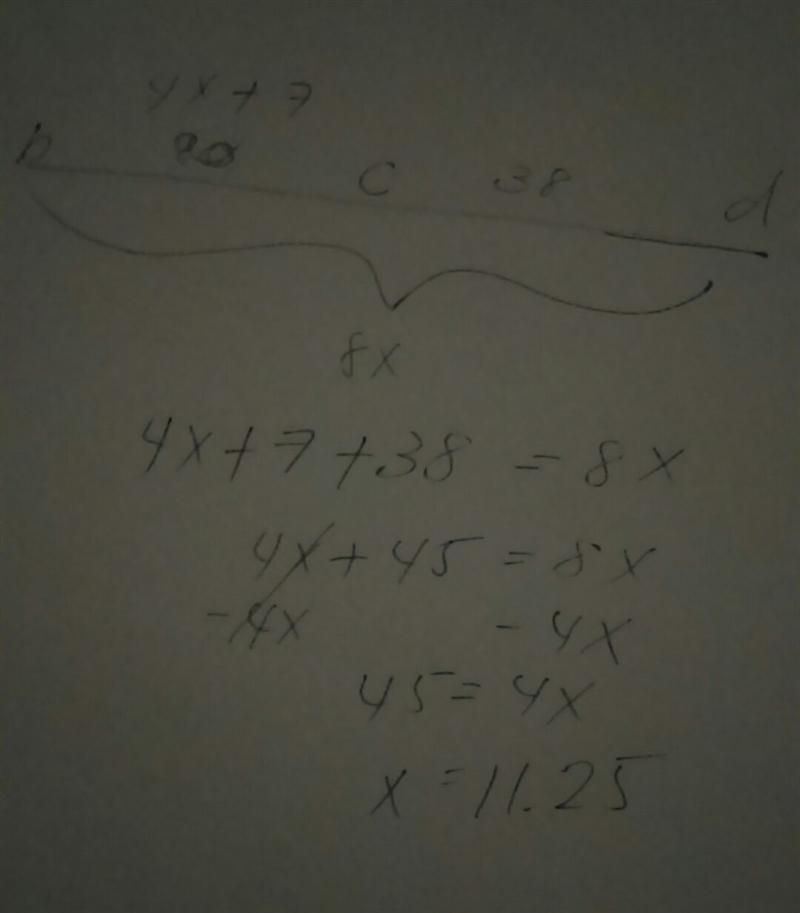 4x + 7
b c 38 d
8x
4x + 7 + 38 = 8x
4x + 45 = 8x
-4x -4x
45 = 4x
x = 11.25